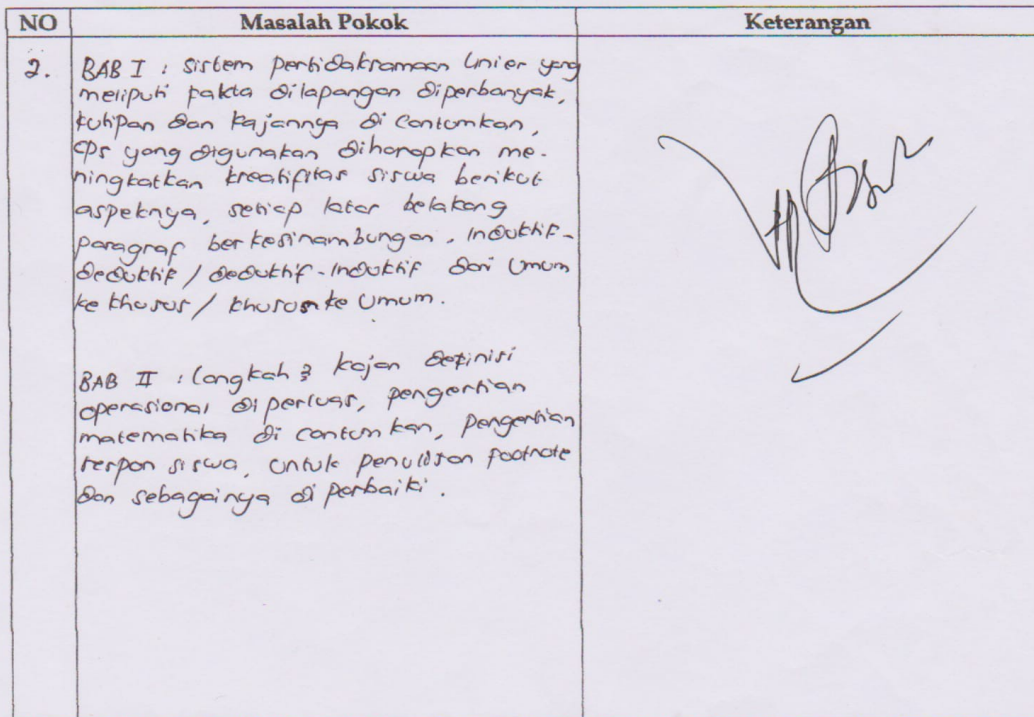 NO Masalah Pokok Keterangan
2. BAB I : Sistem pertidaksamaan linier yang
meliputi fakta dilapangan diperbanyak,
kutipan dan kajannya di contumkan,
CPS yang digunakan diharapkan me-
ningkatkan kreatifitas siswa berikut
aspeknya, setiap latar belakang
paragraf berkesinambungan, Induktif-
deduktif / deduktif-Induktif dari Umum
ke khusus / khusus ke Umum.
BAB II : langkah2 kajan definisi
operasional diperluas, pengertian
matematika di contumkan, pengertian
respon siswa, untuk penulisan footnote
dan sebagainya di perbaiki.